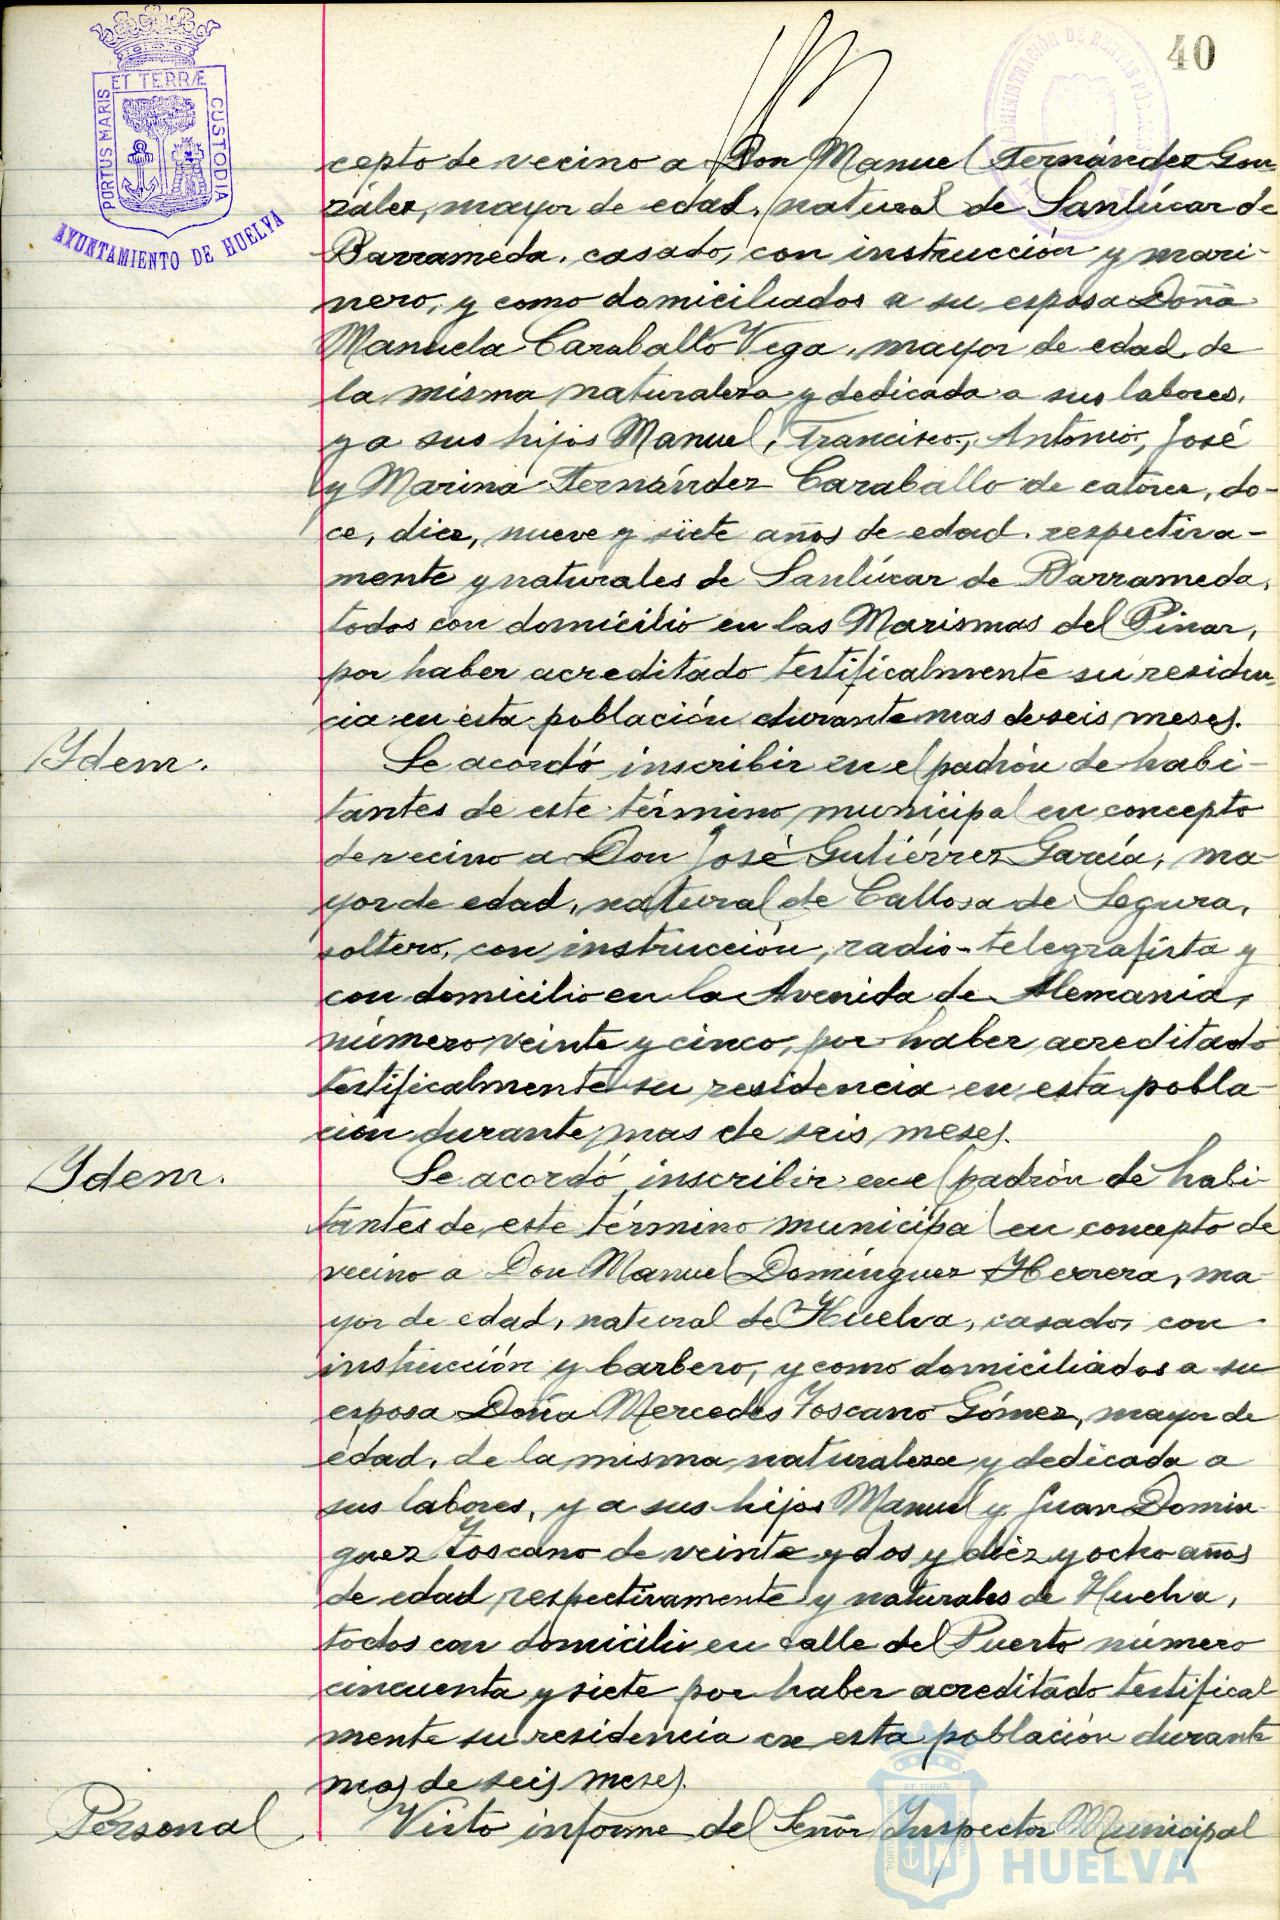 40
ET TERRÆ
PORTUS MARIS
CUSTODIA
AYUNTAMIENTO DE HUELVA
ADMINISTRACIÓN DE RENTAS PÚBLICAS
cepto de vecino a Don Manuel Fernández Gon-
zález, mayor de edad, natural de Sanlúcar de
Barrameda, casado, con instrucción y mari-
nero, y como domiciliados a su esposa Doña
Manuela Caraballo Vega, mayor de edad, de
la misma naturaleza y dedicada a sus labores,
y a sus hijos Manuel, Francisco, Antonio, José
y Marina Fernández Caraballo de catorce, do-
ce, diez, nueve y siete años de edad, respectiva-
mente y naturales de Sanlúcar de Barrameda,
todos con domicilio en las Marismas del Pinar,
por haber acreditado testificalmente su residen-
cia en esta población durante mas de seis meses.
Ydem.
Se acordó inscribir en el padrón de habi-
tantes de este término municipal en concepto
de vecino a Don José Gutiérrez García, ma-
yor de edad, natural de Callosa de Segura,
soltero, con instrucción, radio-telegrafista y
con domicilio en la Avenida de Alemania,
número veinte y cinco, por haber acreditado
testificalmente su residencia en esta pobla-
ción durante mas de seis meses.
Ydem.
Se acordó inscribir en el padrón de habi-
tantes de este término municipal en concepto de
vecino a Don Manuel Domínguez Herrera, ma-
yor de edad, natural de Huelva, casado, con
instrucción y barbero, y como domiciliados a su
esposa Doña Mercedes Toscano Gómez, mayor de
edad, de la misma naturaleza y dedicada a
sus labores, y a sus hijos Manuel y Juan Domín-
guez Toscano de veinte y dos y diez y ocho años
de edad respectivamente y naturales de Huelva,
todos con domicilio en calle del Puerto número
cincuenta y siete por haber acreditado testifical
mente su residencia en esta población durante
mas de seis meses.
Personal
Visto informe del Señor Inspector Municipal
HUELVA